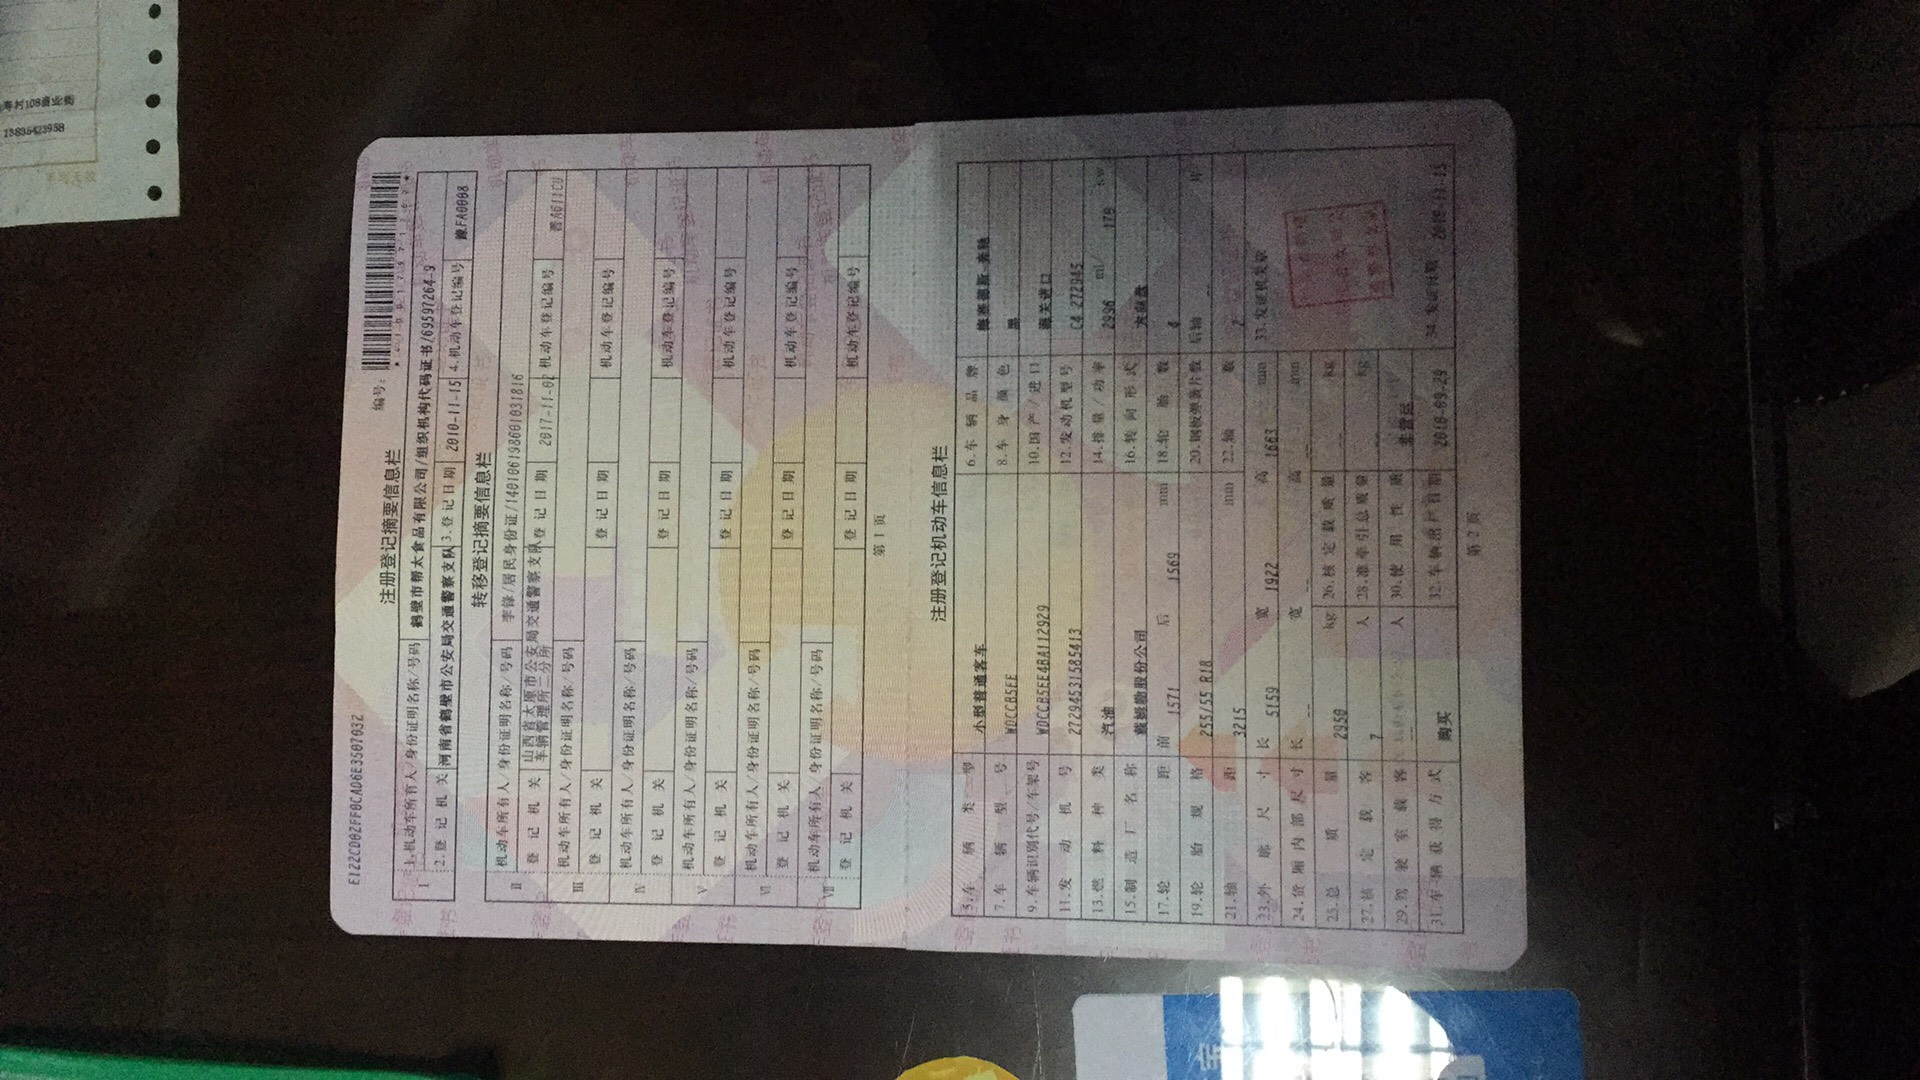 寿村108商业街
13835423958
E122CD02FF0CAD6E3507032
编号:
注册登记摘要信息栏
I 1.机动车所有人/身份证明名称/号码 鹤壁市帮太食品有限公司/组织机构代码证书/69597264-9
2.登记机关 河南省鹤壁市公安局交通警察支队 3.登记日期 2010-11-15 4.机动车登记编号 豫FA0008
转移登记摘要信息栏
II 机动车所有人/身份证明名称/号码 李锋/居民身份证/140106198601031816
登记机关 山西省太原市公安局交通警察支队车辆管理所二分所 登记日期 2017-11-02 机动车登记编号 晋A611CU
III 机动车所有人/身份证明名称/号码
登记机关 登记日期 机动车登记编号
IV 机动车所有人/身份证明名称/号码
登记机关 登记日期 机动车登记编号
V 机动车所有人/身份证明名称/号码
登记机关 登记日期 机动车登记编号
VI 机动车所有人/身份证明名称/号码
登记机关 登记日期 机动车登记编号
VII 机动车所有人/身份证明名称/号码
登记机关 登记日期 机动车登记编号
第 1 页
注册登记机动车信息栏
5.车辆类型 小型普通客车 6.车辆品牌 梅赛德斯-奔驰
7.车辆型号 WDCCB5EE 8.车身颜色 黑
9.车辆识别代号/车架号 WDCCB5EE4BA112929 10.国产/进口 海关进口
11.发动机号 27294531585413 12.发动机型号 272945
13.燃料种类 汽油 14.排量/功率 2996 ml/ 170 kw
15.制造厂名称 戴姆勒股份公司 16.转向形式 方向盘
17.轮距 前 1571 后 1569 mm 18.轮胎数 4
19.轮胎规格 255/55 R18 20.钢板弹簧片数 后轴 片
21.轴距 3215 mm 22.轴数 2
23.外廓尺寸 长 5159 宽 1922 高 1663 mm 33.发证机关章
24.货厢内部尺寸 长 -- 宽 -- 高 -- mm
25.总质量 2950 kg 26.核定载质量 -- kg
27.核定载客 7 人 28.准牵引总质量 -- kg
29.驾驶室载客 -- 人 30.使用性质 非营运
31.车辆获得方式 购买 32.车辆出厂日期 2010-09-29 34.发证日期 2010-11-15
第 2 页